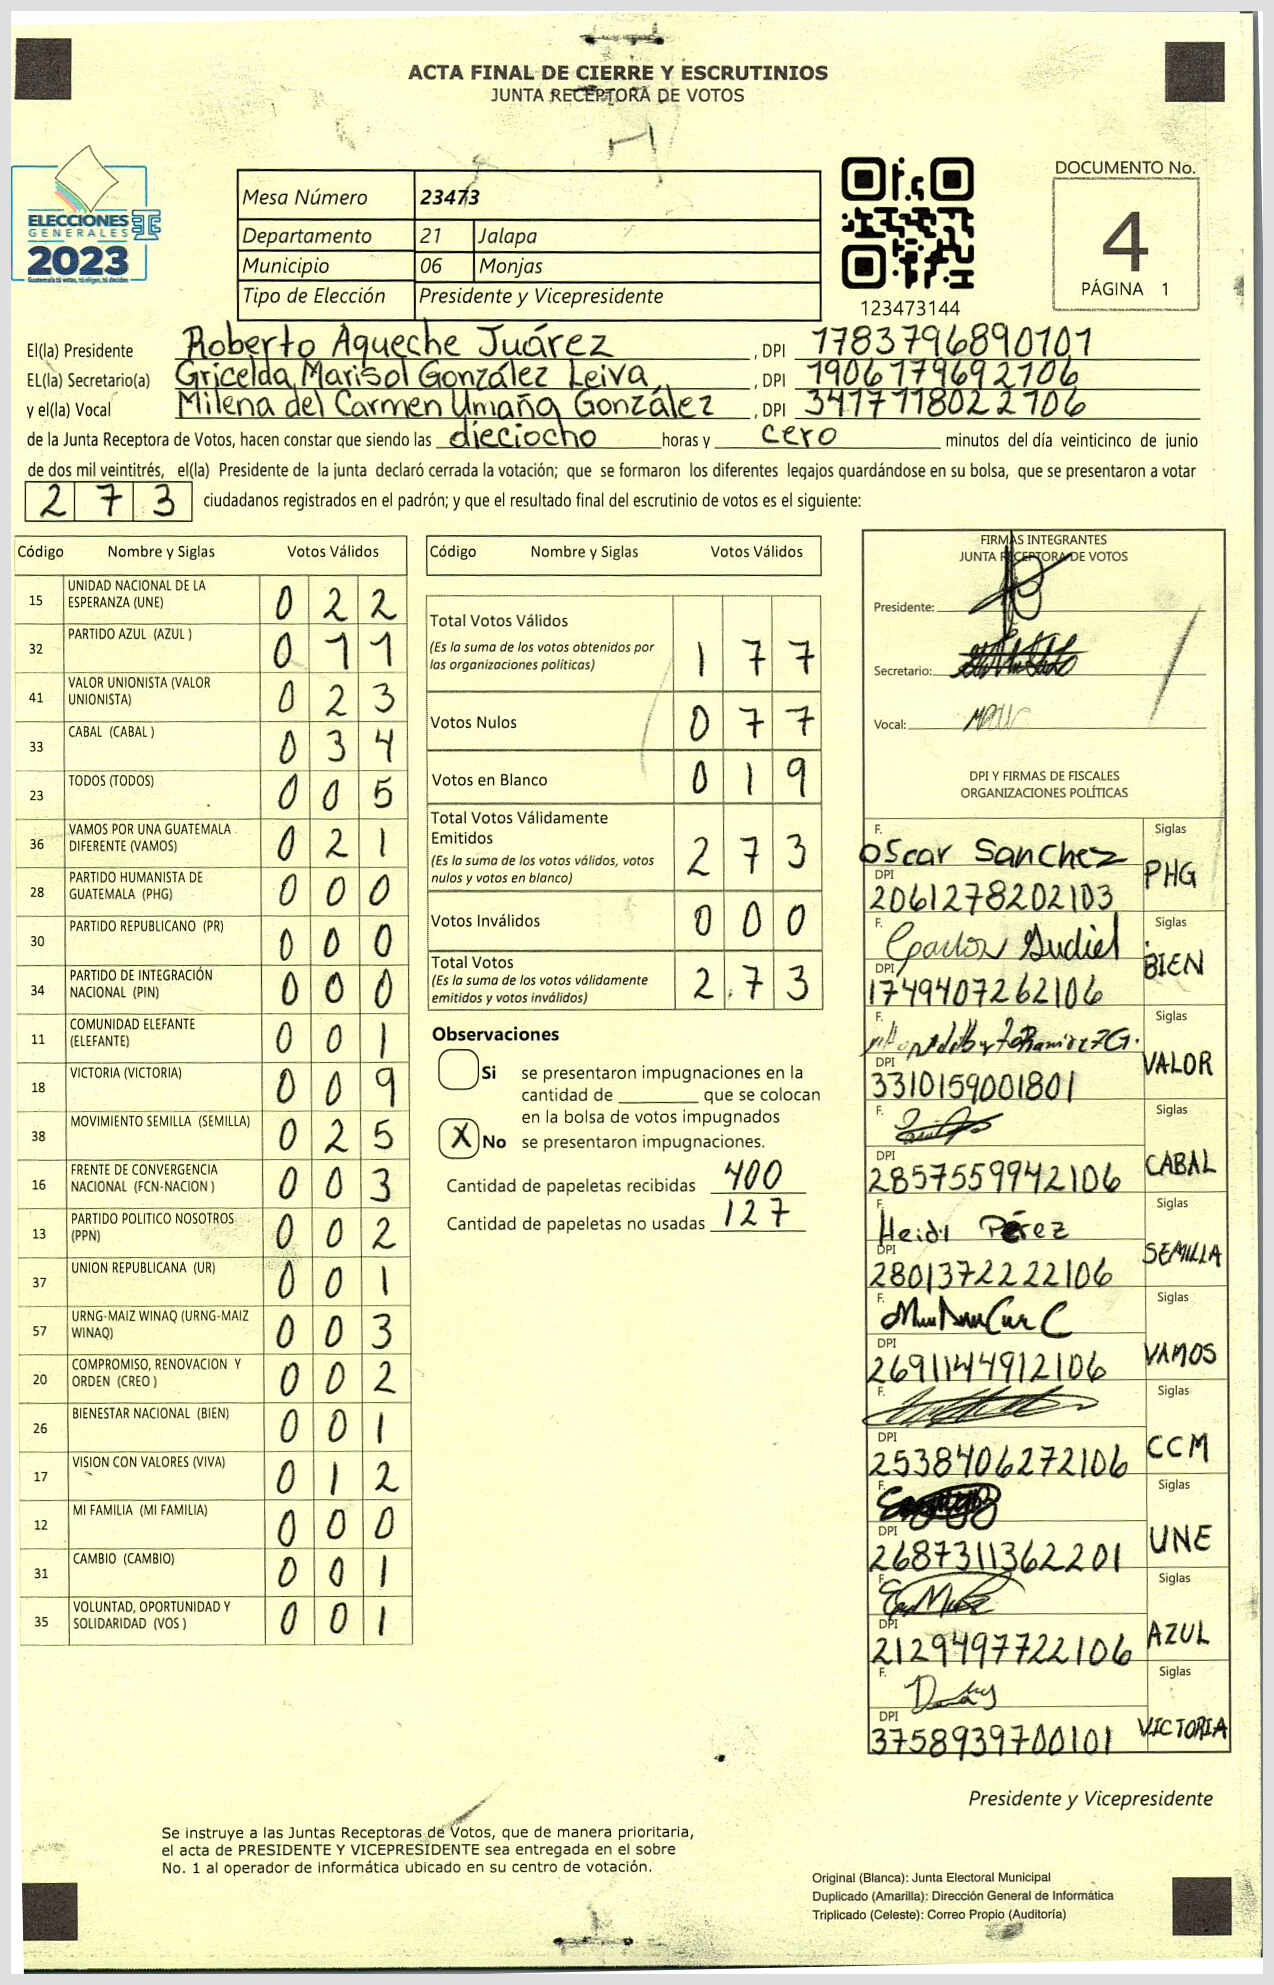 ACTA FINAL DE CIERRE Y ESCRUTINIOS
JUNTA RECEPTORA DE VOTOS
ELECCIONES
GENERALES
2023
Guatemala tú votas, tú eliges, tú decides
Mesa Número 23473
Departamento 21 Jalapa
Municipio 06 Monjas
Tipo de Elección Presidente y Vicepresidente
123473144
DOCUMENTO No.
4
PÁGINA 1
El(la) Presidente Roberto Aqueche Juárez , DPI 1783796890101
EL(la) Secretario(a) Gricelda Marisol González Leiva , DPI 1906179692106
y el(la) Vocal Milena del Carmen Umaña González , DPI 3417718022106
de la Junta Receptora de Votos, hacen constar que siendo las dieciocho horas y cero minutos del día veinticinco de junio
de dos mil veintitrés, el(la) Presidente de la junta declaró cerrada la votación; que se formaron los diferentes legajos guardándose en su bolsa, que se presentaron a votar
273 ciudadanos registrados en el padrón; y que el resultado final del escrutinio de votos es el siguiente:
Código Nombre y Siglas Votos Válidos
15 UNIDAD NACIONAL DE LA ESPERANZA (UNE) 022
32 PARTIDO AZUL (AZUL ) 011
41 VALOR UNIONISTA (VALOR UNIONISTA) 023
33 CABAL (CABAL ) 034
23 TODOS (TODOS) 005
36 VAMOS POR UNA GUATEMALA DIFERENTE (VAMOS) 021
28 PARTIDO HUMANISTA DE GUATEMALA (PHG) 000
30 PARTIDO REPUBLICANO (PR) 000
34 PARTIDO DE INTEGRACIÓN NACIONAL (PIN) 000
11 COMUNIDAD ELEFANTE (ELEFANTE) 001
18 VICTORIA (VICTORIA) 009
38 MOVIMIENTO SEMILLA (SEMILLA) 025
16 FRENTE DE CONVERGENCIA NACIONAL (FCN-NACION ) 003
13 PARTIDO POLITICO NOSOTROS (PPN) 002
37 UNION REPUBLICANA (UR) 001
57 URNG-MAIZ WINAQ (URNG-MAIZ WINAQ) 003
20 COMPROMISO, RENOVACION Y ORDEN (CREO ) 002
26 BIENESTAR NACIONAL (BIEN) 001
17 VISION CON VALORES (VIVA) 012
12 MI FAMILIA (MI FAMILIA) 000
31 CAMBIO (CAMBIO) 001
35 VOLUNTAD, OPORTUNIDAD Y SOLIDARIDAD (VOS ) 001
Código Nombre y Siglas Votos Válidos
Total Votos Válidos
(Es la suma de los votos obtenidos por las organizaciones políticas) 177
Votos Nulos 077
Votos en Blanco 019
Total Votos Válidamente Emitidos
(Es la suma de los votos válidos, votos nulos y votos en blanco) 273
Votos Inválidos 000
Total Votos
(Es la suma de los votos válidamente emitidos y votos inválidos) 273
Observaciones
Si se presentaron impugnaciones en la
cantidad de ________ que se colocan
en la bolsa de votos impugnados
X No se presentaron impugnaciones.
Cantidad de papeletas recibidas 400
Cantidad de papeletas no usadas 127
FIRMAS INTEGRANTES
JUNTA RECEPTORA DE VOTOS
Presidente:
Secretario:
Vocal:
DPI Y FIRMAS DE FISCALES
ORGANIZACIONES POLÍTICAS
F. Oscar Sanchez Siglas
DPI 2061278202103 PHG
F. Carlos Gudiel Siglas
DPI 1749407262106 BIEN
F. Siglas
DPI 3310159001801 VALOR
F. Siglas
DPI 2857559942106 CABAL
F. Heidi Pérez Siglas
DPI 2801372222106 SEMILLA
F. Siglas
DPI 2691144912106 VAMOS
F. Siglas
DPI 2538406272106 CCM
F. Siglas
DPI 2687311362201 UNE
F. Siglas
DPI 2129497722106 AZUL
F. Siglas
DPI 3758939700101 VICTORIA
Presidente y Vicepresidente
Se instruye a las Juntas Receptoras de Votos, que de manera prioritaria,
el acta de PRESIDENTE Y VICEPRESIDENTE sea entregada en el sobre
No. 1 al operador de informática ubicado en su centro de votación.
Original (Blanca): Junta Electoral Municipal
Duplicado (Amarilla): Dirección General de Informática
Triplicado (Celeste): Correo Propio (Auditoría)